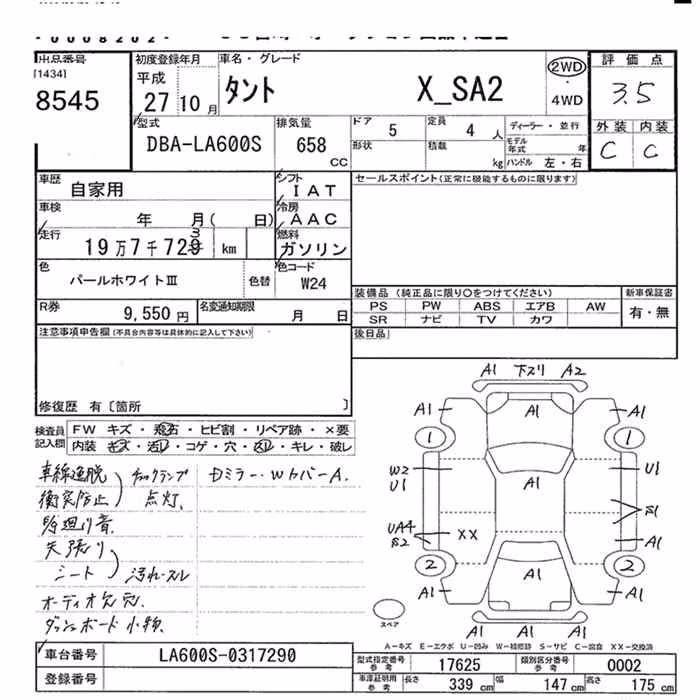 出品番号 初度登録年月 車名・グレード 2WD 評価点
[1434] 平成 タント X_SA2 3.5
8545 27 10 月 4WD
型式 排気量 ドア 5 定員 4 人 ディーラー・並行 外装 内装
DBA-LA600S 658 CC 形状 積載 kg モデル年式 年 C C
ハンドル 左・右
車歴 自家用 シフト IAT セールスポイント(正常に機能するものに限ります)
車検 年 月( 日) 冷房 AAC
走行 19万7千729 km 燃料 ガソリン
3
色 パールホワイトⅢ 色替 色コード W24
装備品(純正品に限り○をつけてください) 新車保証書
R券 9,550 円 名変通知期限 月 日 PS PW ABS エアB AW 有・無
SR ナビ TV カワ
注意事項申告欄(不具合内容等は具体的に記入して下さい) 後日品
修復歴 有〔箇所 〕
検査員記入欄 FW キズ・飛石・ヒビ割・リペア跡・×要
内装 キズ・汚レ・コゲ・穴・スレ・キレ・破レ
車線逸脱 チェックランプ Dミラー・WカバーA.
衝突防止 点灯、
天張り
シート 汚れ・スレ
オーディオ欠 穴.
ダッシュボード小物.
A1 下スリ A2
A1 A1 A1
1 1
W2 U1
U1 A1
S1
UA4 XX A1
S2
2 2
A1 A1 A1
A1 A1 A1
スペア
A-キズ E-エクボ U-凹み W-補修跡 S-サビ C-腐食 XX-交換済
車台番号 LA600S-0317290 型式指定番号 参考 17625 類別区分番号 参考 0002
登録番号 車庫証明用 参考 長さ 339 cm 幅 147 cm 高さ 175 cm